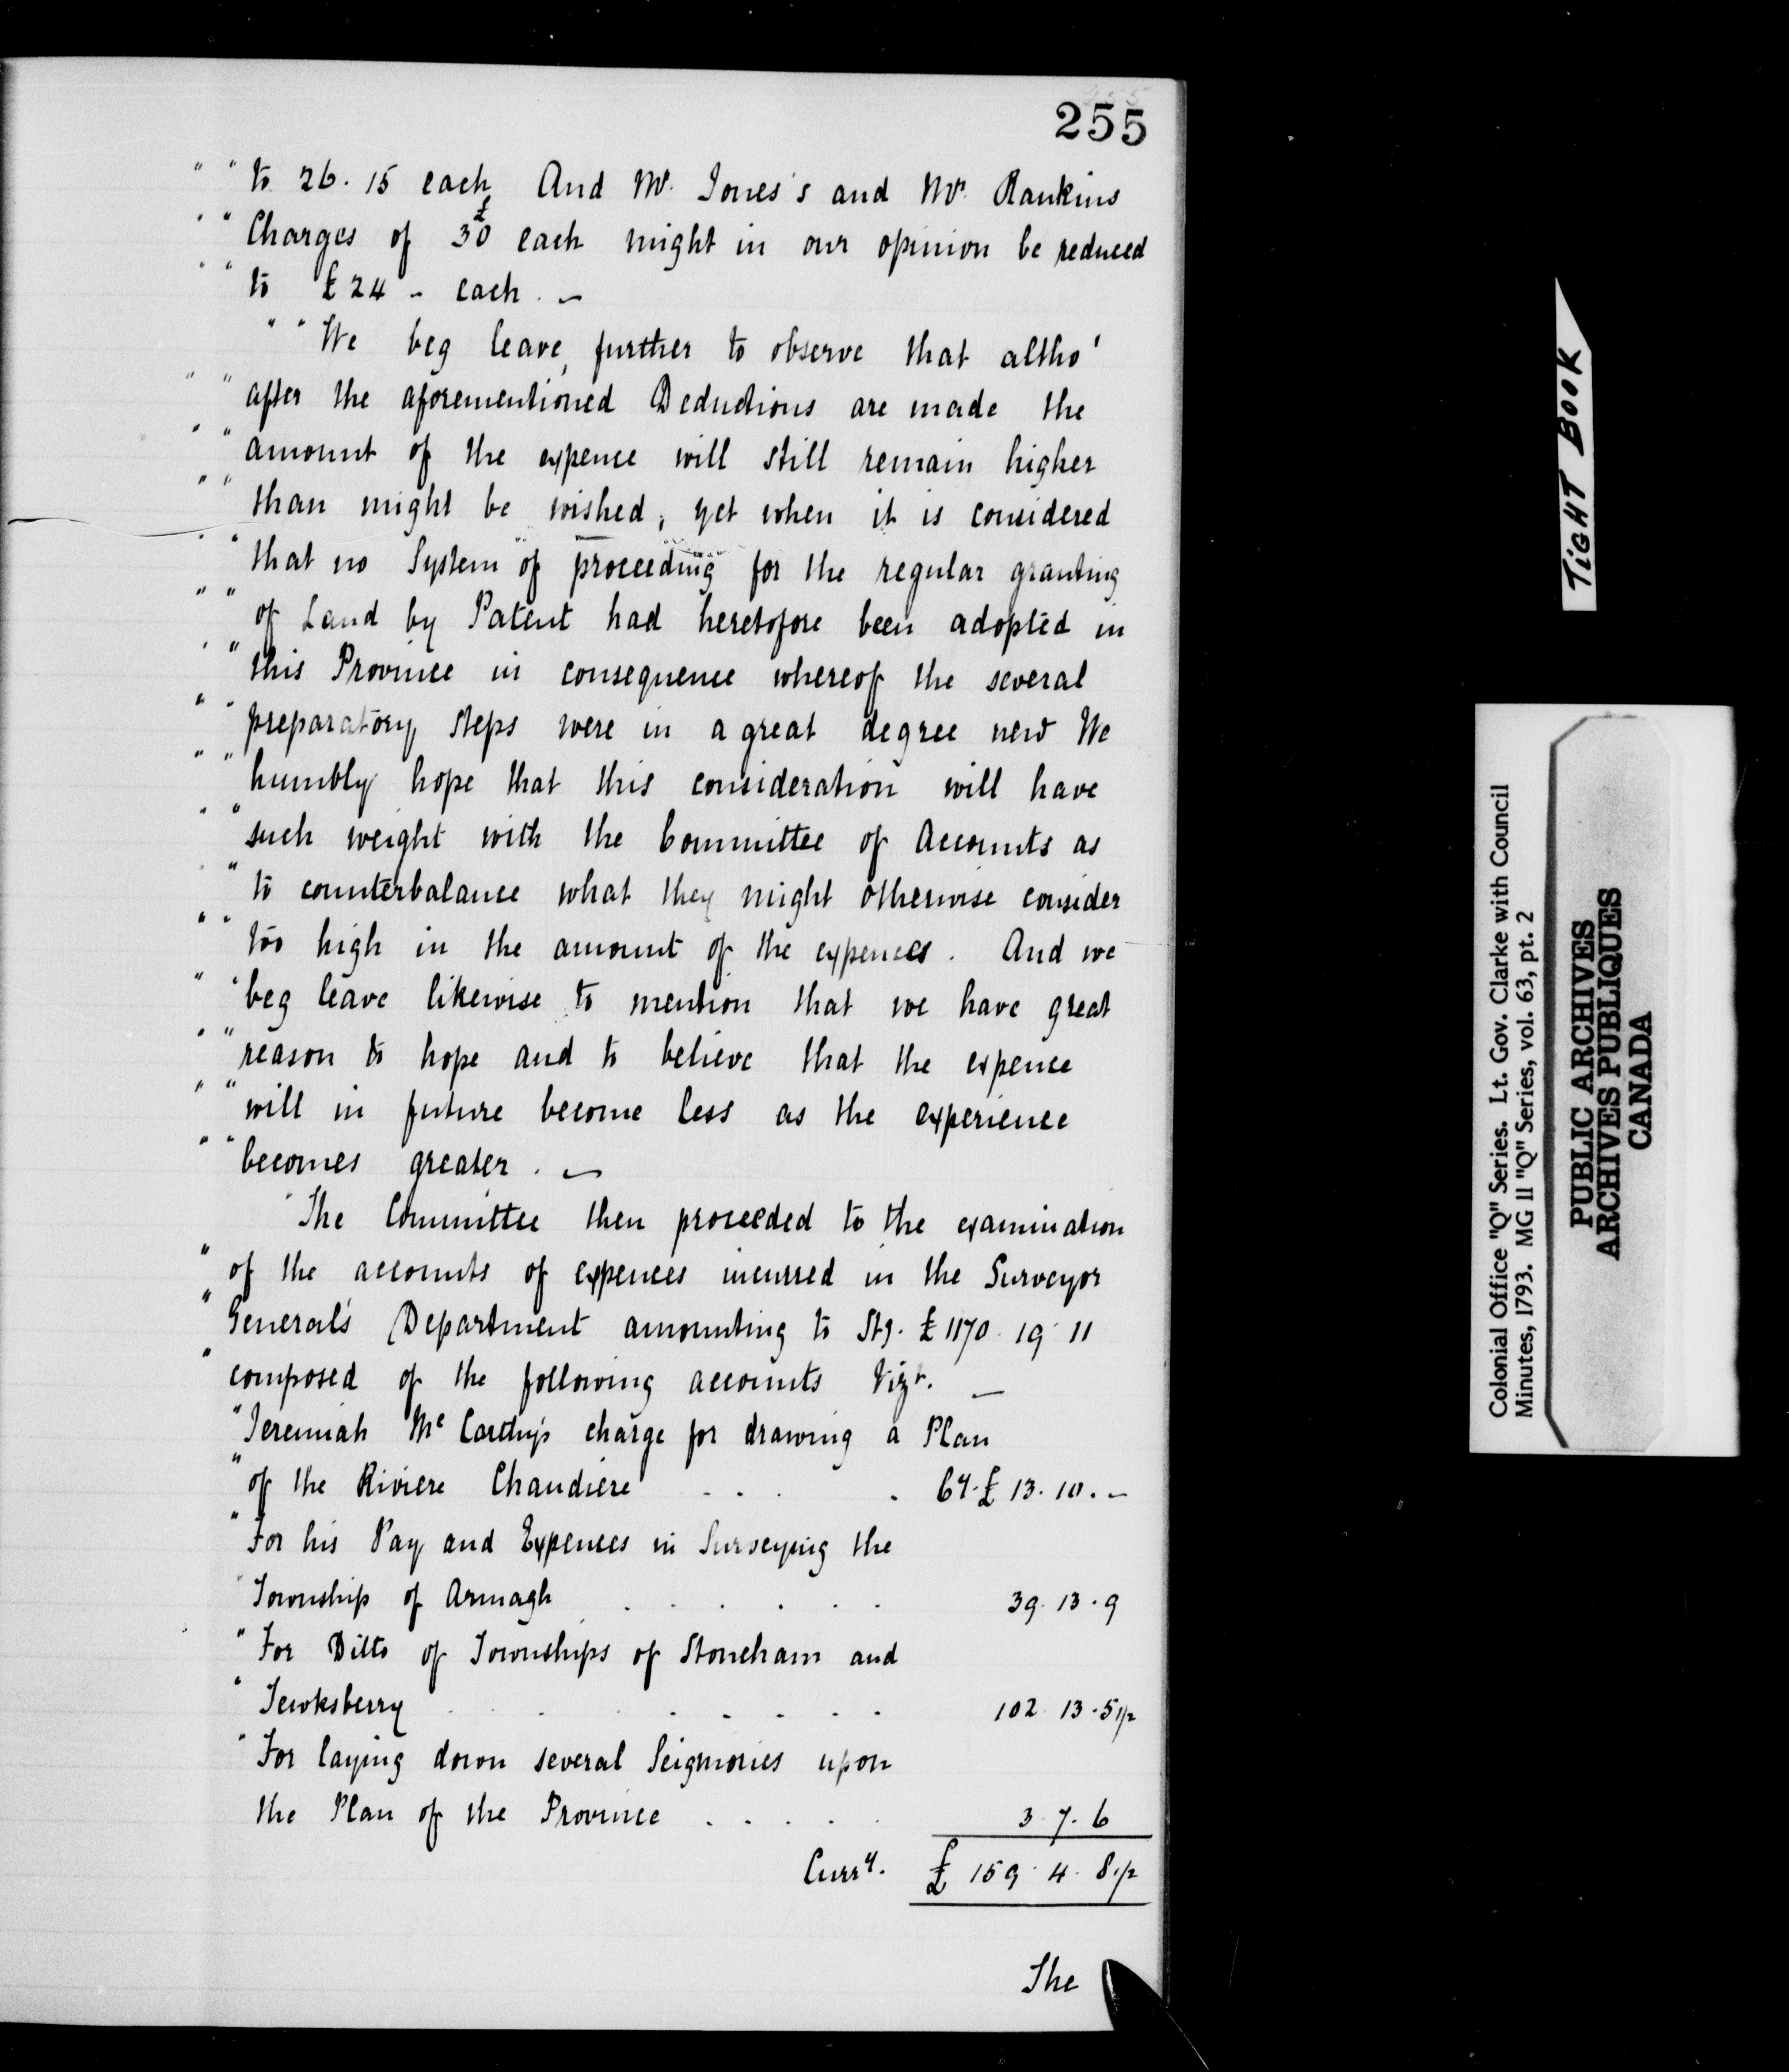 255
" " to 26. 15 each And Mr. Jones's and Mr. Rankins
" " Charges of £30 each might in our opinion be reduced
" " to £24 - each. —
" " We beg leave, further to observe that altho'
" " after the aforementioned Deductions are made the
" " amount of the expence will still remain higher
" " than might be wished, yet when it is considered
" " that no System of proceeding for the regular granting
" " of Land by Patent had heretofore been adopted in
" " this Province in consequence whereof the several
" " preparatory steps were in a great degree new We
" " humbly hope that this consideration will have
" " such weight with the Committee of Accounts as
" to counterbalance what they might otherwise consider
" " too high in the amount of the expences. And we
" " beg leave likewise to mention that we have great
" " reason to hope and to believe that the expence
" " will in future become less as the experience
" " becomes greater. —
" The Committee then proceeded to the examination
" of the accounts of expences incurred in the Surveyor
" General's Department amounting to Stg. £1170. 19. 11
" composed of the following accounts Vizt. —
" Jeremiah McCarthy's charge for drawing a Plan
" of the Riviere Chaudiere . . . . Cy. £ 13. 10. -
" For his Pay and Expences in Surveying the
" Township of Armagh . . . . . . 39. 13. 9
" For Ditto of Townships of Stoneham and
" Tewksberry . . . . . . . 102. 13. 5 1/2
" For laying down several Seigniories upon
the Plan of the Province . . . . . 3. 7. 6
Curry. £ 159. 4. 8 1/2
The
TIGHT BOOK
Colonial Office "Q" Series. Lt. Gov. Clarke with Council
Minutes, 1793. MG 11 "Q" Series, vol. 63, pt. 2
PUBLIC ARCHIVES
ARCHIVES PUBLIQUES
CANADA